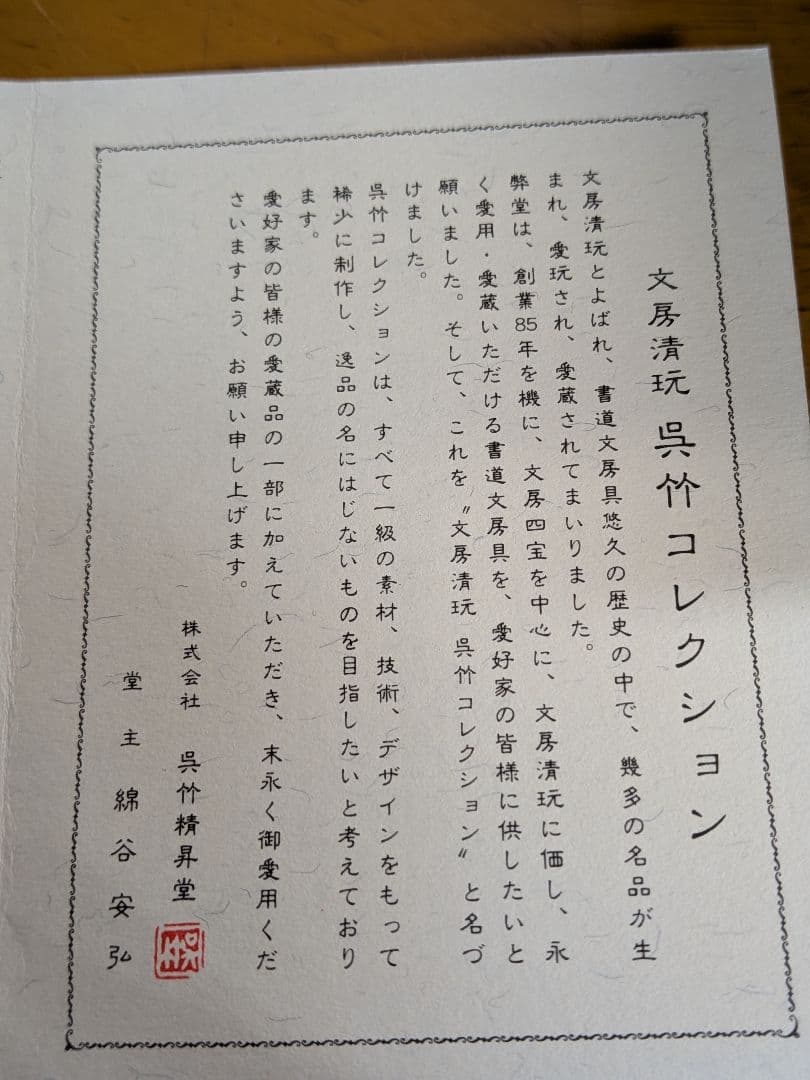 文房清玩 呉竹コレクション
文房清玩とよばれ、書道文房具悠久の歴史の中で、幾多の名品が生
まれ、愛玩され、愛蔵されてまいりました。
弊堂は、創業85年を機に、文房四宝を中心に、文房清玩に価し、永
く愛用・愛蔵いただける書道文房具を、愛好家の皆様に供したいと
願いました。そして、これを〝文房清玩 呉竹コレクション〟と名づ
けました。
呉竹コレクションは、すべて一級の素材、技術、デザインをもって
稀少に制作し、逸品の名にはじないものを目指したいと考えており
ます。
愛好家の皆様の愛蔵品の一部に加えていただき、末永く御愛用くだ
さいますよう、お願い申し上げます。
株式会社 呉竹精昇堂
堂主 綿谷安弘